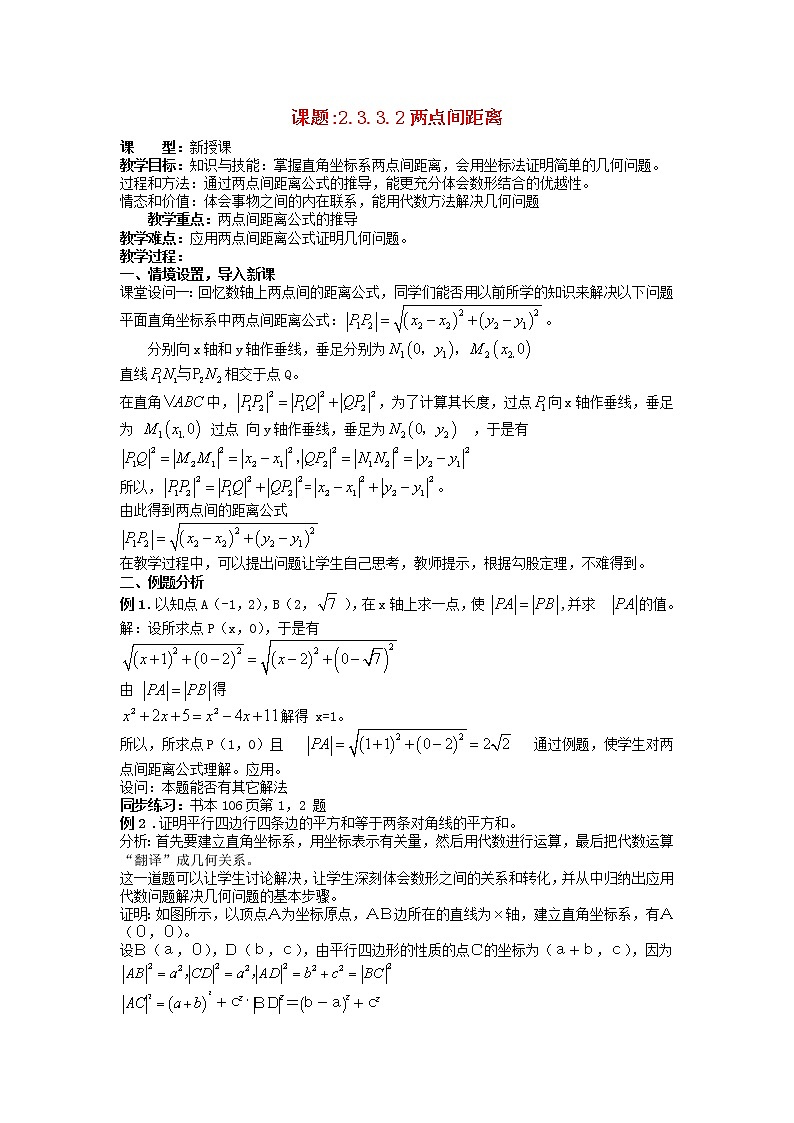 课题:2.3.3.2两点间距离
课　　型:新授课
教学目标:知识与技能:掌握直角坐标系两点间距离,会用坐标法证明简单的几何问题。
过程和方法:通过两点间距离公式的推导,能更充分体会数形结合的优越性。
情态和价值:体会事物之间的内在联系,能用代数方法解决几何问题
教学重点:两点间距离公式的推导
教学难点:应用两点间距离公式证明几何问题。
教学过程:
一、情境设置,导入新课
课堂设问一:回忆数轴上两点间的距离公式,同学们能否用以前所学的知识来解决以下问题
平面直角坐标系中两点间距离公式: |P₁P₂| = √((x₂−x₂)²+(y₂−y₁)²)。
分别向x轴和y轴作垂线,垂足分别为 N₁(0, y₁), M₂(x₂,0)
直线P₁N₁与P₂N₂相交于点Q。
在直角∨ABC中, |P₁P₂|² = |P₁Q|² + |QP₂|²,为了计算其长度,过点P₁向x轴作垂线,垂足
为 M₁(x₁,0) 过点 向y轴作垂线,垂足为N₂(0, y₂) ,于是有
|P₁Q|² = |M₂M₁|² = |x₂−x₁|²,|QP₂|² = |N₁N₂|² = |y₂−y₁|²
所以, |P₁P₂|² = |P₁Q|² + |QP₂|²=|x₂−x₁|²+|y₂−y₁|²。
由此得到两点间的距离公式
|P₁P₂| = √((x₂−x₂)²+(y₂−y₁)²)
在教学过程中,可以提出问题让学生自己思考,教师提示,根据勾股定理,不难得到。
二、例题分析
例1.以知点A(-1,2),B(2, √7 ),在x轴上求一点,使 |PA|=|PB|,并求 |PA|的值。
解:设所求点P(x,0),于是有
√((x+1)²+(0−2)²) = √((x−2)²+(0−√7)²)
由 |PA|=|PB|得
x²+2x+5=x²−4x+11解得 x=1。
所以,所求点P(1,0)且 |PA|=√((1+1)²+(0−2)²)=2√2 通过例题,使学生对两
点间距离公式理解。应用。
设问:本题能否有其它解法
同步练习:书本106页第1,2 题
例2 .证明平行四边行四条边的平方和等于两条对角线的平方和。
分析:首先要建立直角坐标系,用坐标表示有关量,然后用代数进行运算,最后把代数运算
“翻译”成几何关系。
这一道题可以让学生讨论解决,让学生深刻体会数形之间的关系和转化,并从中归纳出应用
代数问题解决几何问题的基本步骤。
证明:如图所示,以顶点A为坐标原点,AB边所在的直线为x轴,建立直角坐标系,有A
(0,0)。
设B(a,0),D(b,c),由平行四边形的性质的点C的坐标为(a+b,c),因为
|AB|²=a²,|CD|²=a²,|AD|²=b²+c²=|BC|²
|AC|²=(a+b)²+c²,|BD|²=(b-a)²+c²